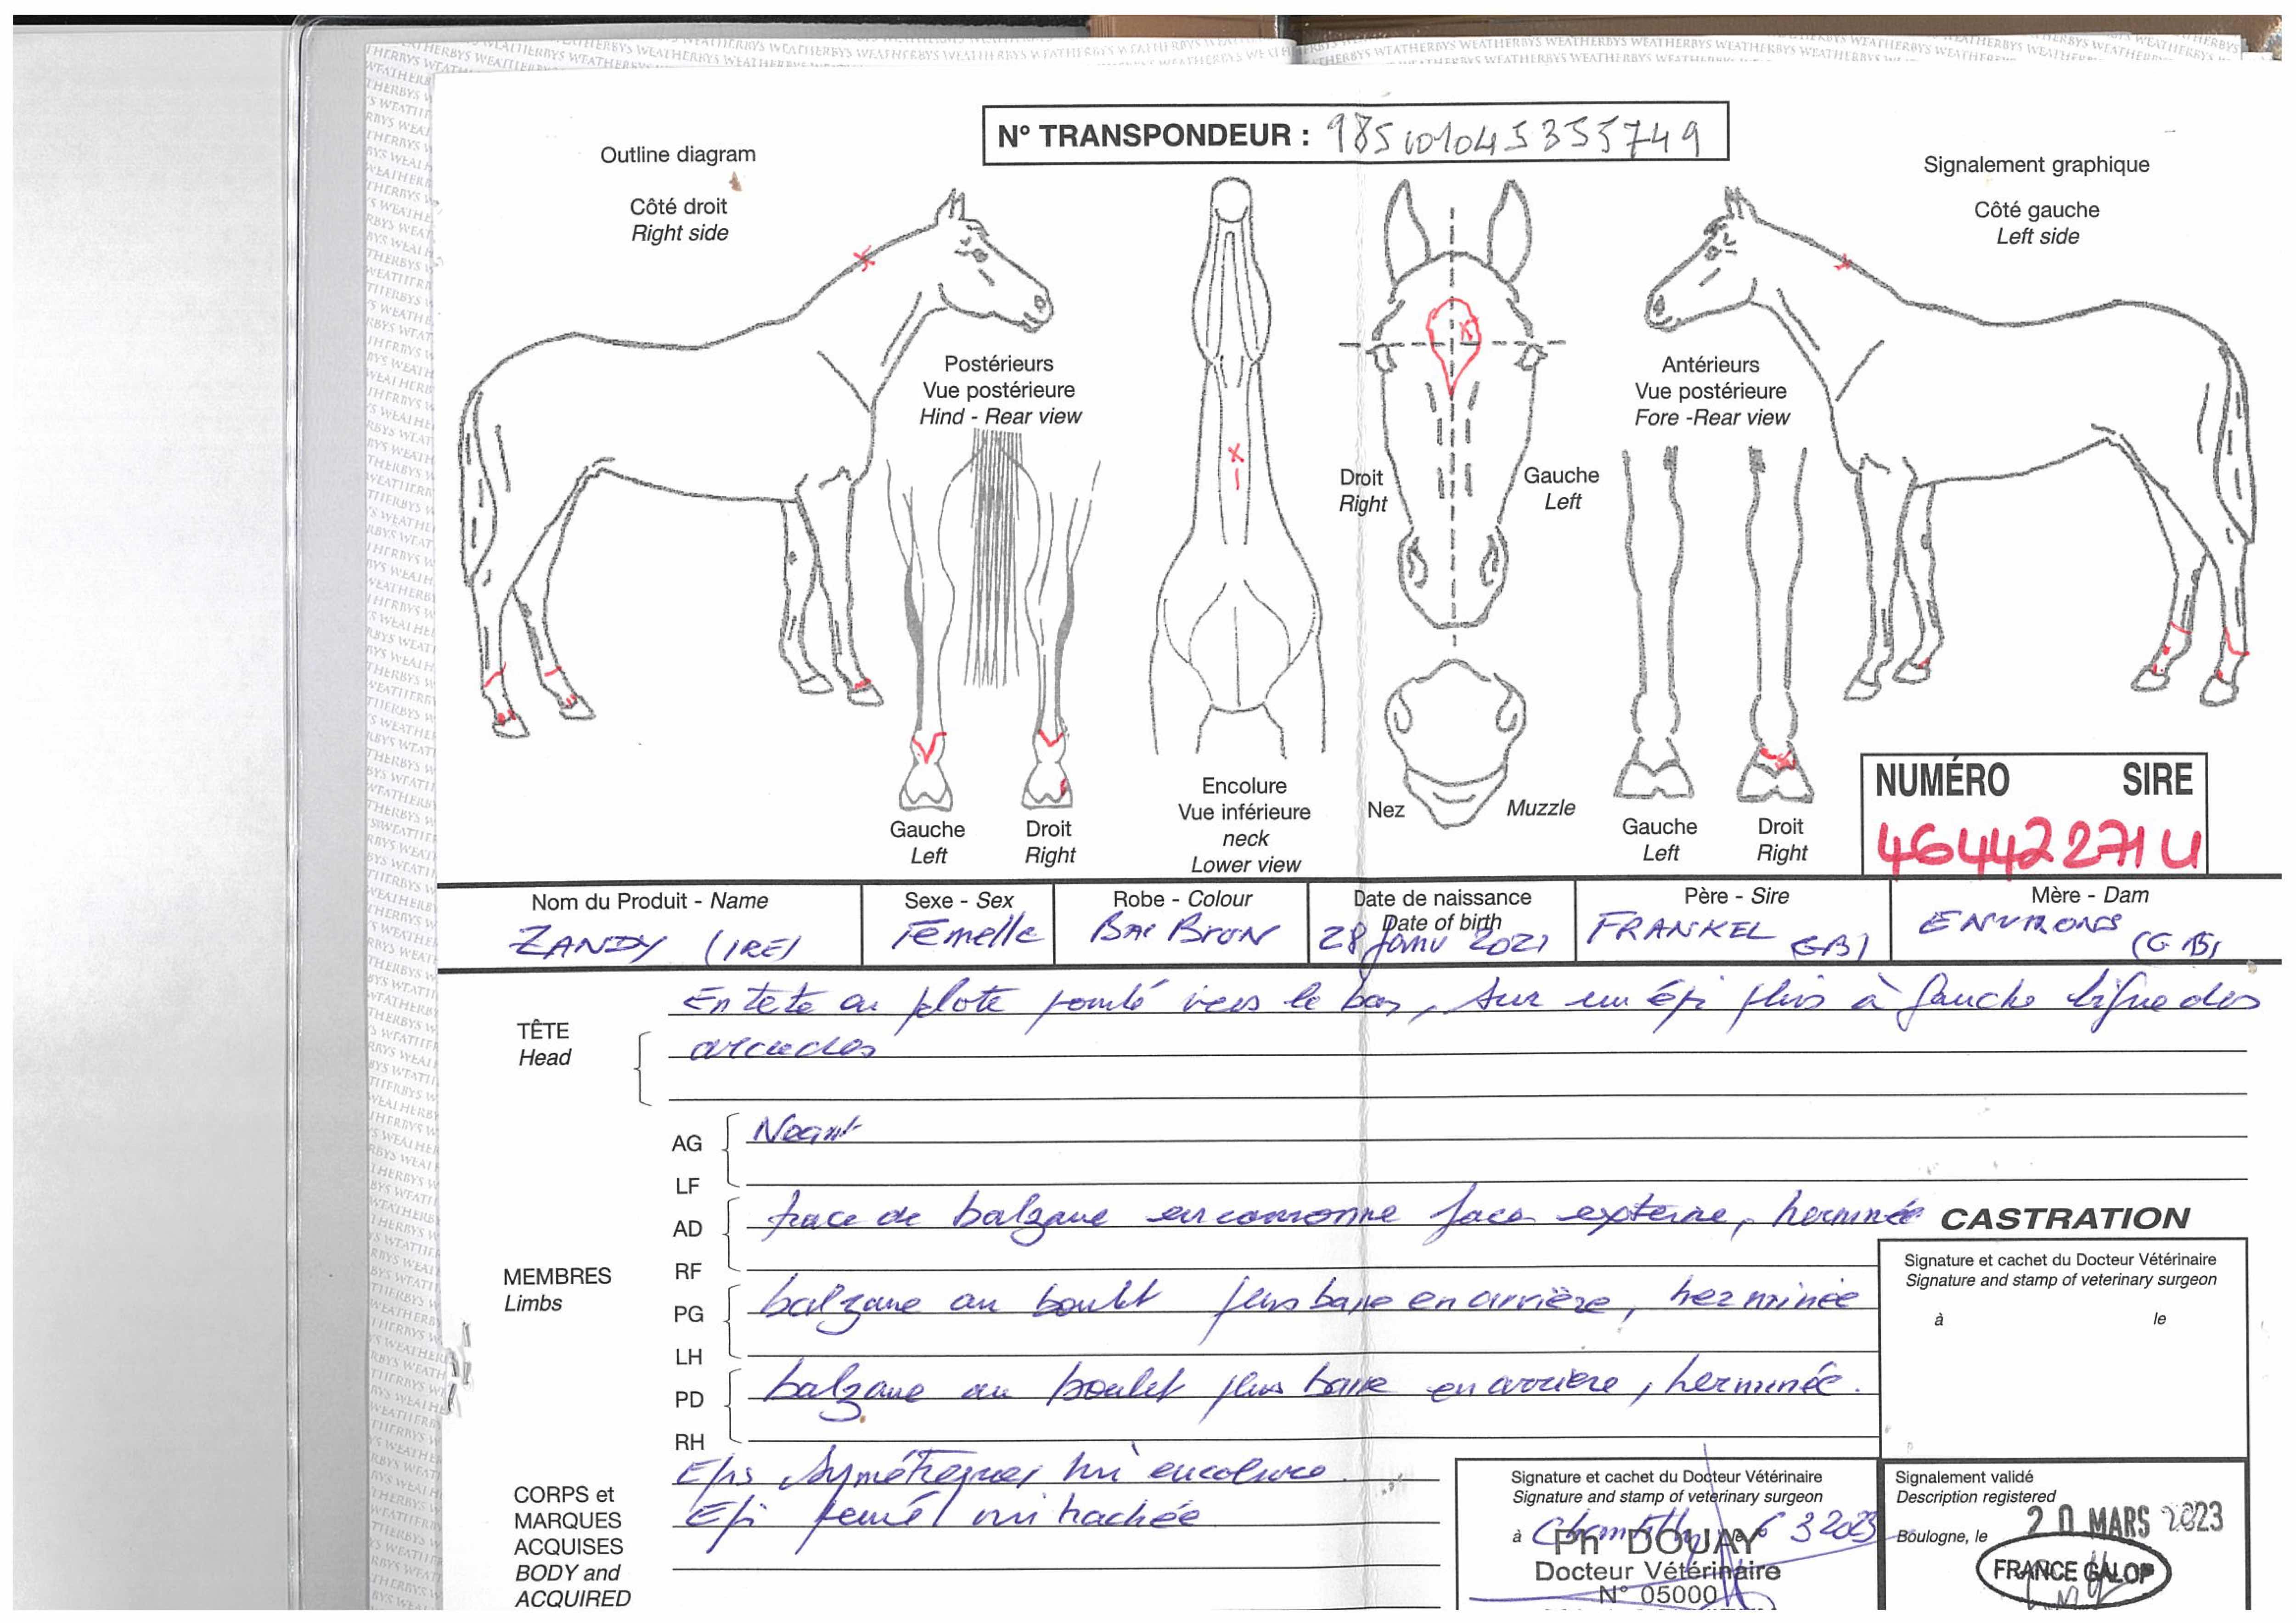 N° TRANSPONDEUR : 985101045355749
Outline diagram
Côté droit
Right side
Signalement graphique
Côté gauche
Left side
Postérieurs
Vue postérieure
Hind - Rear view
Antérieurs
Vue postérieure
Fore -Rear view
Droit
Right
Gauche
Left
Gauche
Left
Droit
Right
Encolure
Vue inférieure
neck
Lower view
Nez
Muzzle
Gauche
Left
Droit
Right
NUMÉRO SIRE
46442271U
Nom du Produit - Name
ZANDY (IRE)
Sexe - Sex
Femelle
Robe - Colour
Bai Brun
Date de naissance
Date of birth
28 Janv 2021
Père - Sire
FRANKEL GB)
Mère - Dam
ENVIRONS (GB)
TÊTE
Head
En tete en plote vers le bas, sur un épi plus à gauche ligne des
arcades
MEMBRES
Limbs
AG
LF
Néant
AD
RF
trace de balzane en couronne face externe, herminée
PG
LH
balzane au boulet plus basse en arrière, herminée
PD
RH
balzane au boulet plus basse en arrière, herminée.
CASTRATION
Signature et cachet du Docteur Vétérinaire
Signature and stamp of veterinary surgeon
à le
CORPS et
MARQUES
ACQUISES
BODY and
ACQUIRED
Epis symétriques mi encolure.
Epi penné mi trachée
Signature et cachet du Docteur Vétérinaire
Signature and stamp of veterinary surgeon
à Chantilly 6 3 2023
Ph DOUAY
Docteur Vétérinaire
N° 05000
Signalement validé
Description registered
Boulogne, le 20 MARS 2023
FRANCE GALOP